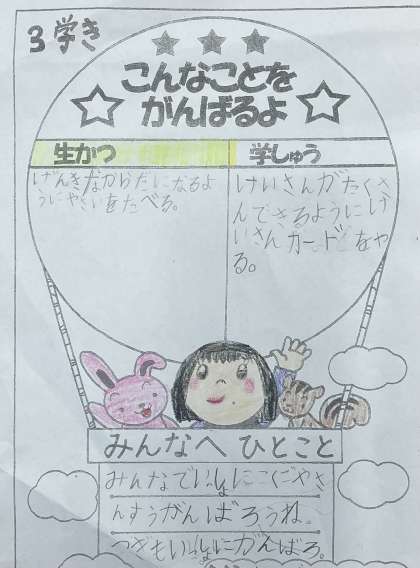 3学き
こんなことを
がんばるよ
生かつ
学しゅう
げんきなからだになるよ
うにやさいをたべる。
けいさんがたくさ
んできるようにけ
いさんカードをや
る。
みんなへ ひとこと
みんなでいっしょにこくごやさ
んすうがんばろうね。
つぎもいっしょにがんばろ。